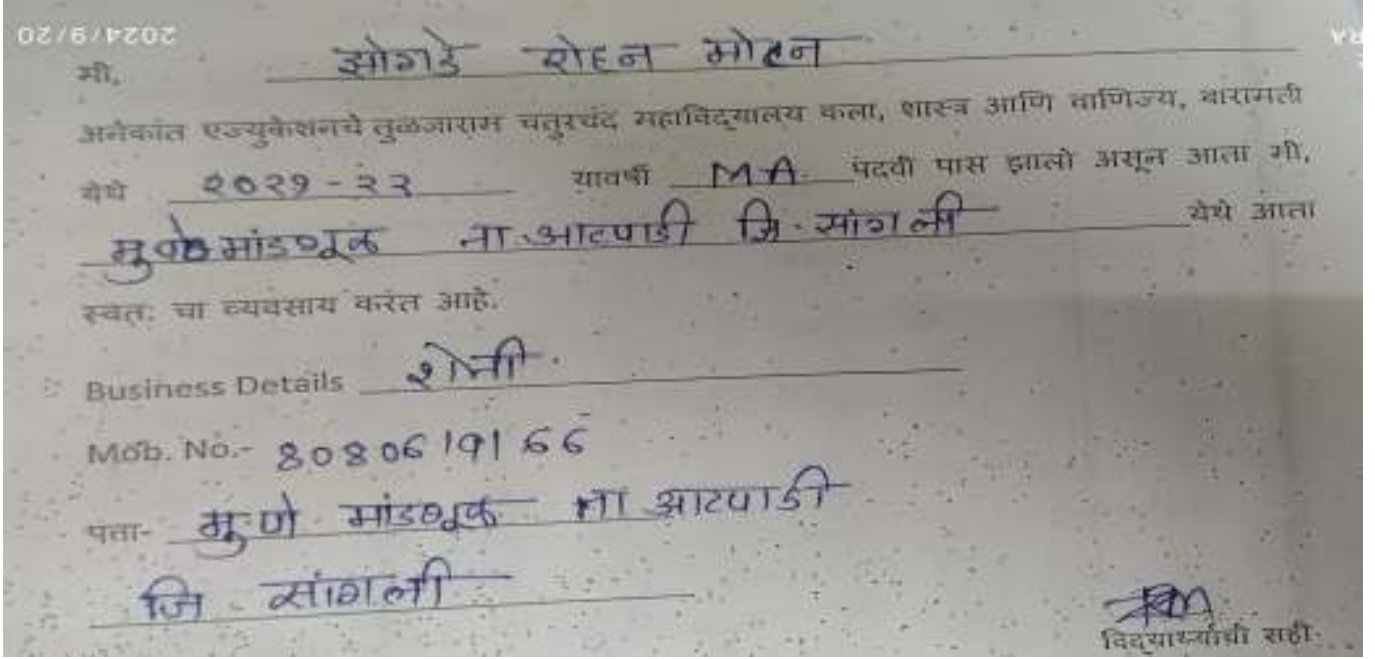 2024/9/20
मी, झोगडे रोहन मोहन
अनेकांत एज्युकेशनचे तुळजाराम चतुरचंद महाविद्यालय कला, शास्त्र आणि वाणिज्य, बारामती
येथे २०२१-२२ यावर्षी M.A. पदवी पास झालो असून आता मी,
ता. आटपाडी जि. सांगली येथे आता
स्वत: चा व्यवसाय करत आहे.
Business Details शेती.
Mob. No.- 8080619166
पता- ता आटपाडी
जि सांगली
विद्यार्थ्याची सही